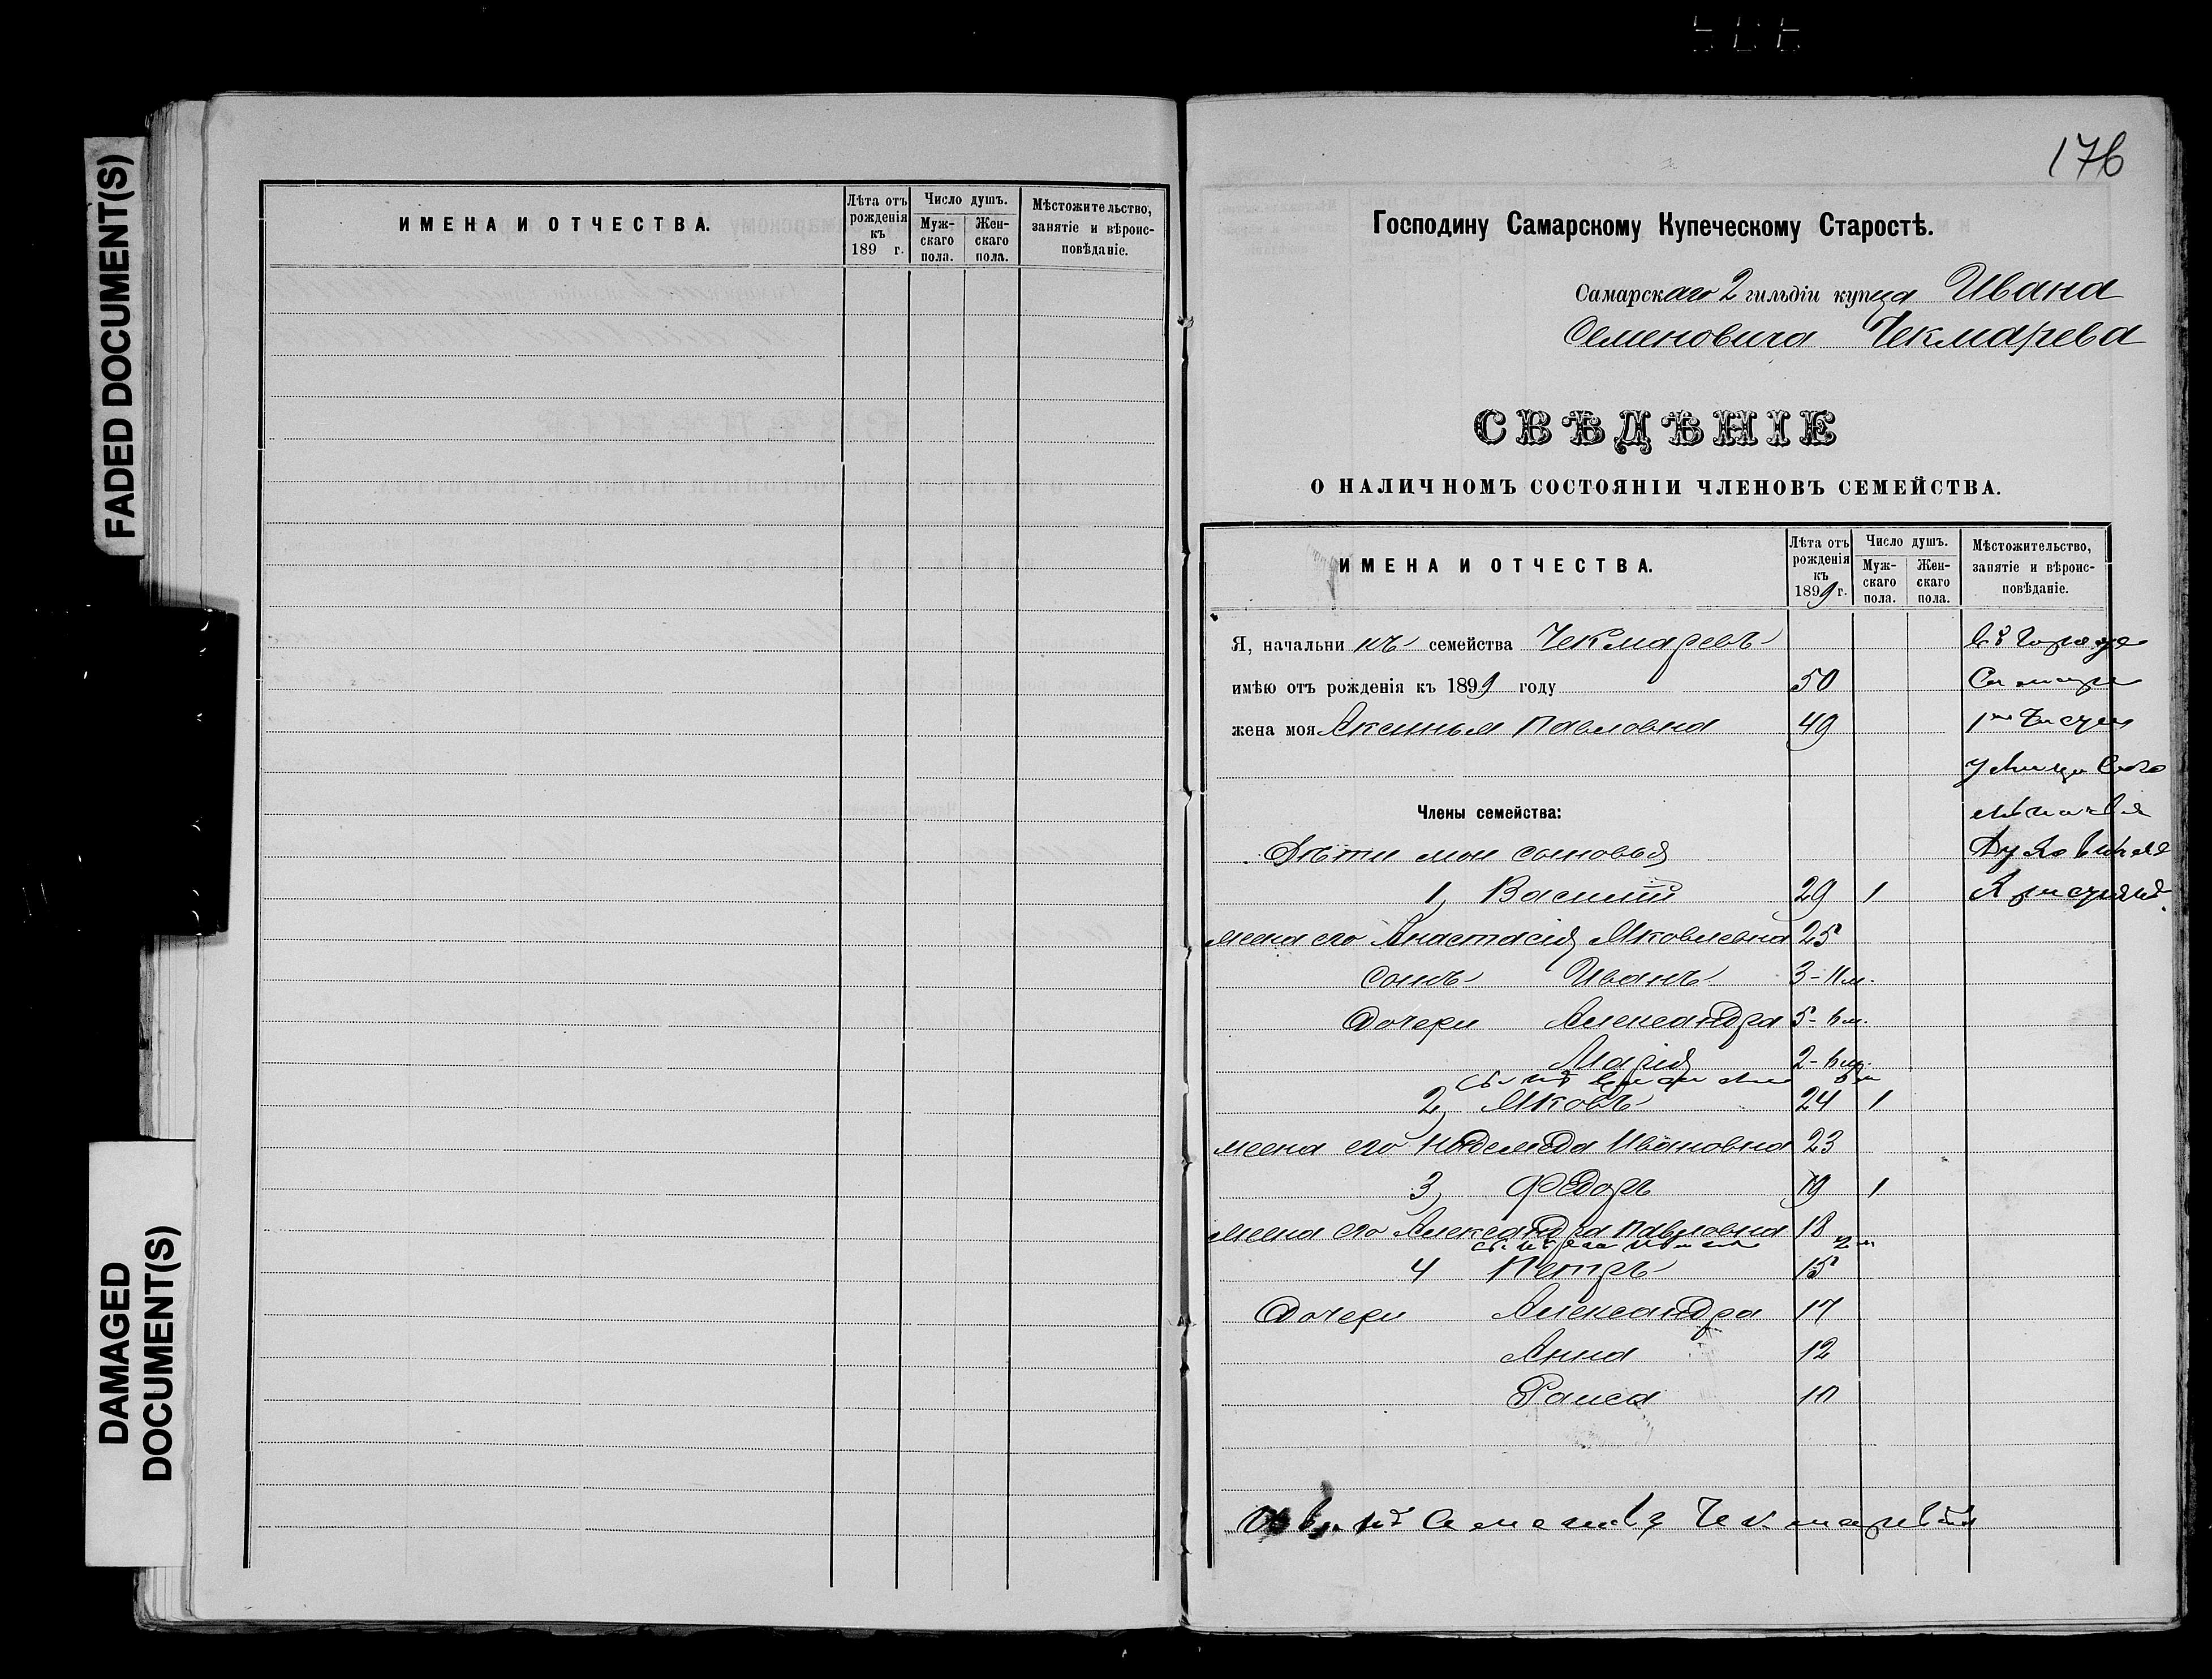 FADED DOCUMENT(S)
DAMAGED
DOCUMENT(S)
ИМЕНА И ОТЧЕСТВА.
Лѣта отъ рожденія къ 189 г.
Число душъ.
Мужскаго пола.
Женскаго пола.
Мѣстожительство, занятіе и вѣроисповѣданіе.
176
Господину Самарскому Купеческому Старостѣ.
Самарскаго 2 гильдіи купца Ивана
Семеновича Чекмарева
СВѢДѢНІЕ
О НАЛИЧНОМЪ СОСТОЯНІИ ЧЛЕНОВЪ СЕМЕЙСТВА.
ИМЕНА И ОТЧЕСТВА.
Лѣта отъ рожденія къ 1899 г.
Число душъ.
Мужскаго пола.
Женскаго пола.
Мѣстожительство, занятіе и вѣроисповѣданіе.
Я, начальникъ семейства Чекмаревъ въ городе
имѣю отъ рожденія къ 1899 году 50 Самаре
жена моя Аксинья Павловна 49
улици
Члены семейства:
Дѣти мои сыновья
1, Василій 29 1
жена его Анастасія Яковлевна 25
сынъ Иванъ 3-11 м.
Дочери Александра 5-6 м.
Марія 2-6 м.
2, Яковъ 24 1
жена его Надежда Ивановна 23
3, Федоръ 19 1
жена его Александра Павловна 18
4 Петръ 15
Дочери Александра 17
Анна 12
Раиса 10
Иванъ Семеновъ Чекмаревъ